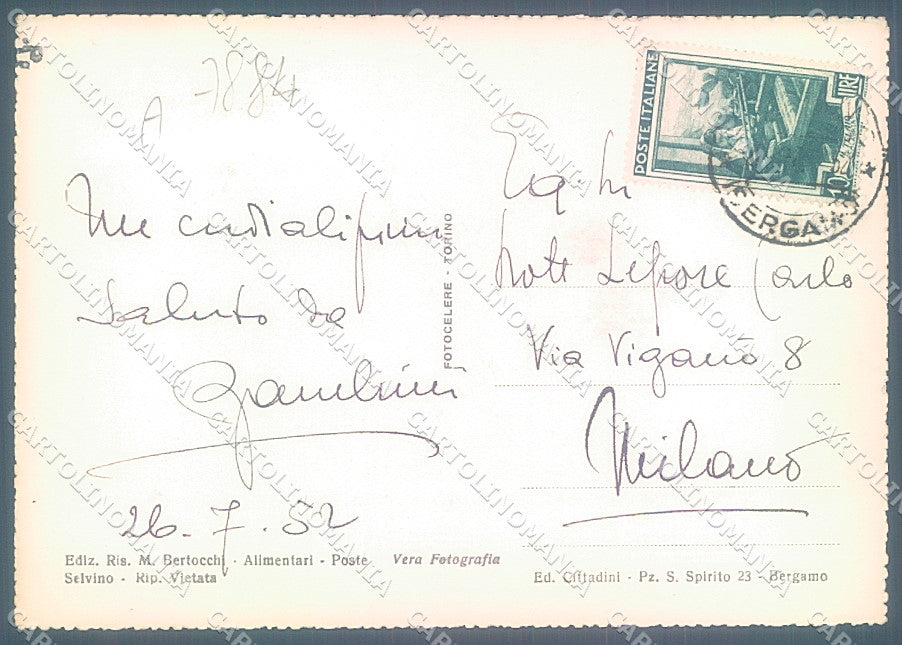 A 7884
POSTE ITALIANE
LIRE
10
BERGAMO
Un cordialissimo
saluto da
Gambini
26.7.52
FOTOCELERE - TORINO
Egr. Sig.
Lepore Carlo
Via Viganò 8
Milano
Ediz. Ris. M. Bertocchi - Alimentari - Poste
Selvino - Rip. Vietata
Vera Fotografia
Ed. Cittadini - Pz. S. Spirito 23 - Bergamo
CARTOLINOMANIA